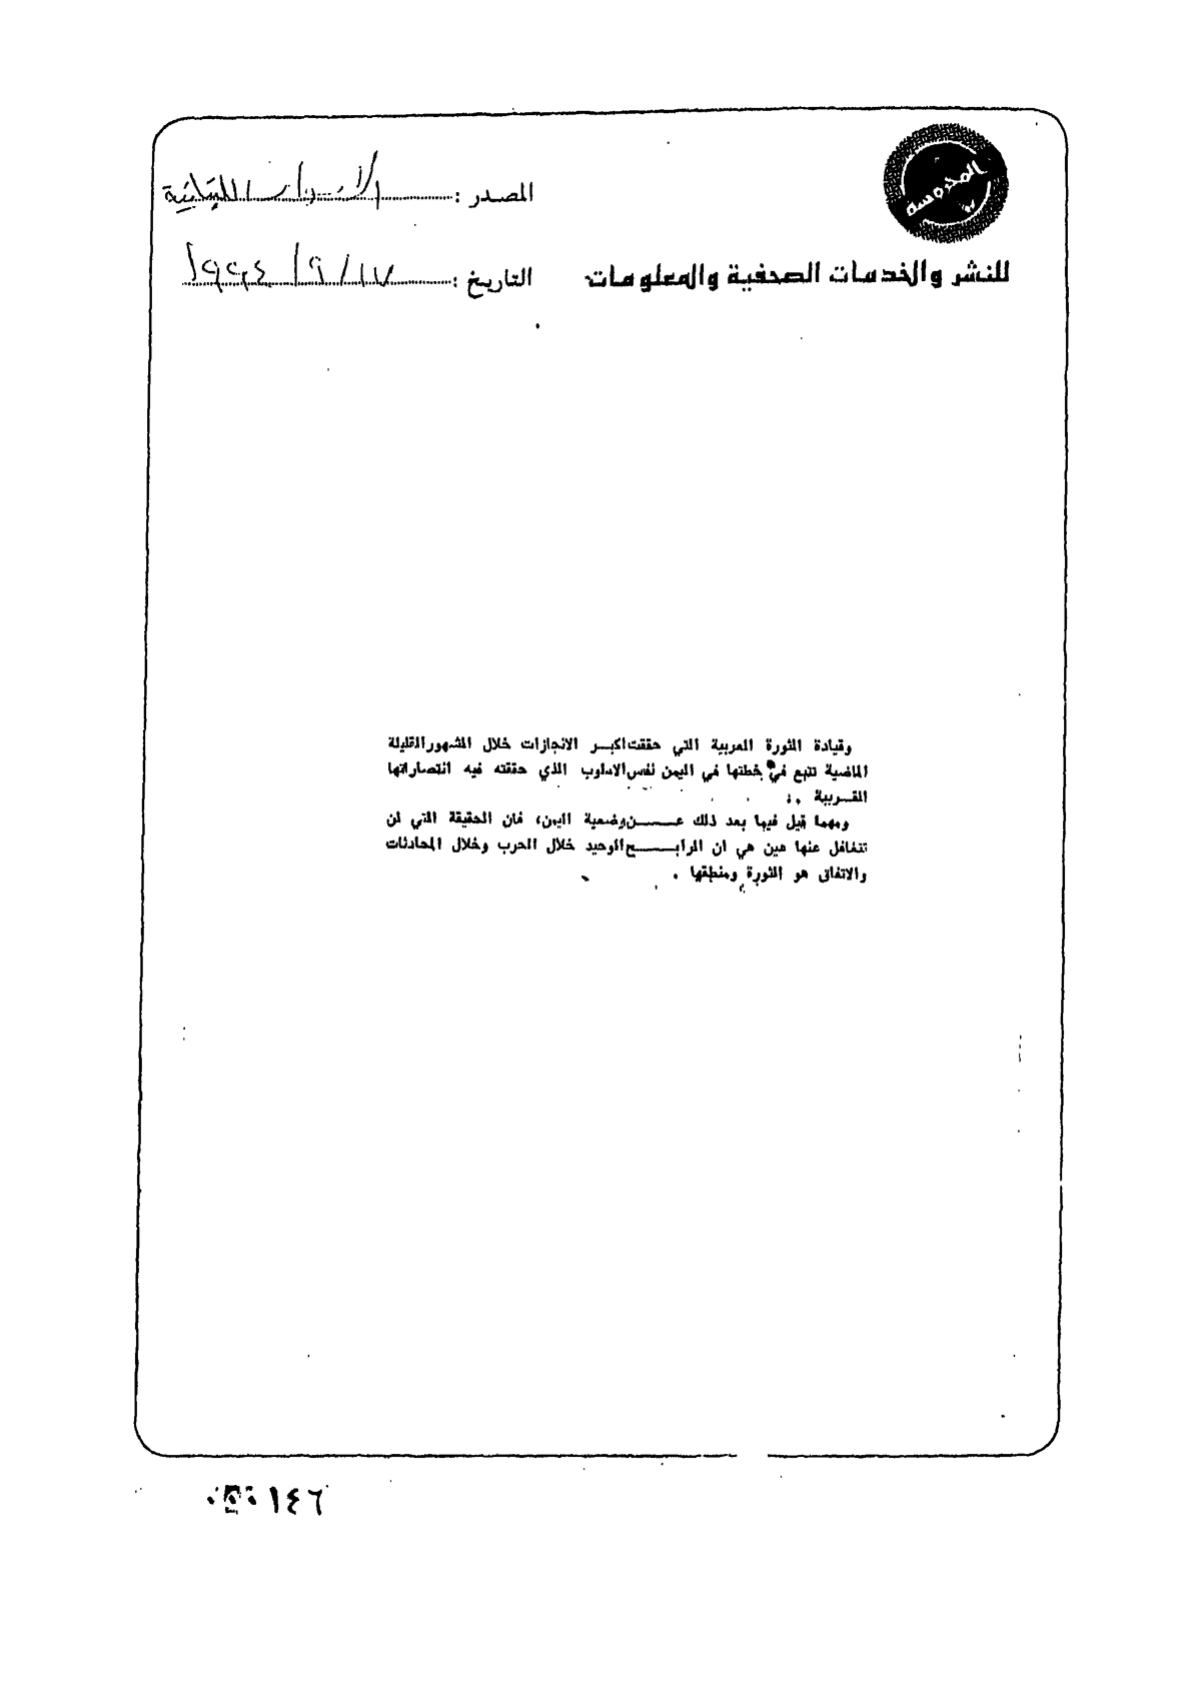 المحروسة
المصدر : الانباء اللبنانية
للنشر والخدمات الصحفية والمعلومات
التاريخ : ١٧ / ٩ / ١٩٩٤
وقيادة الثورة العربية التي حققت اكبر الانجازات خلال الشهور القليلة
الماضية تتبع في خطتها في اليمن نفس الاسلوب الذي حققته فيه انتصاراتها
القريبة .
ومهما قيل فيها بعد ذلك عن وضعية اليمن، فان الحقيقة التي لن
تتغافل عنها عين هي ان الرابح الوحيد خلال الحرب وخلال المحادثات
والاتفاق هو الثورة ومنطقها .
١٤٦